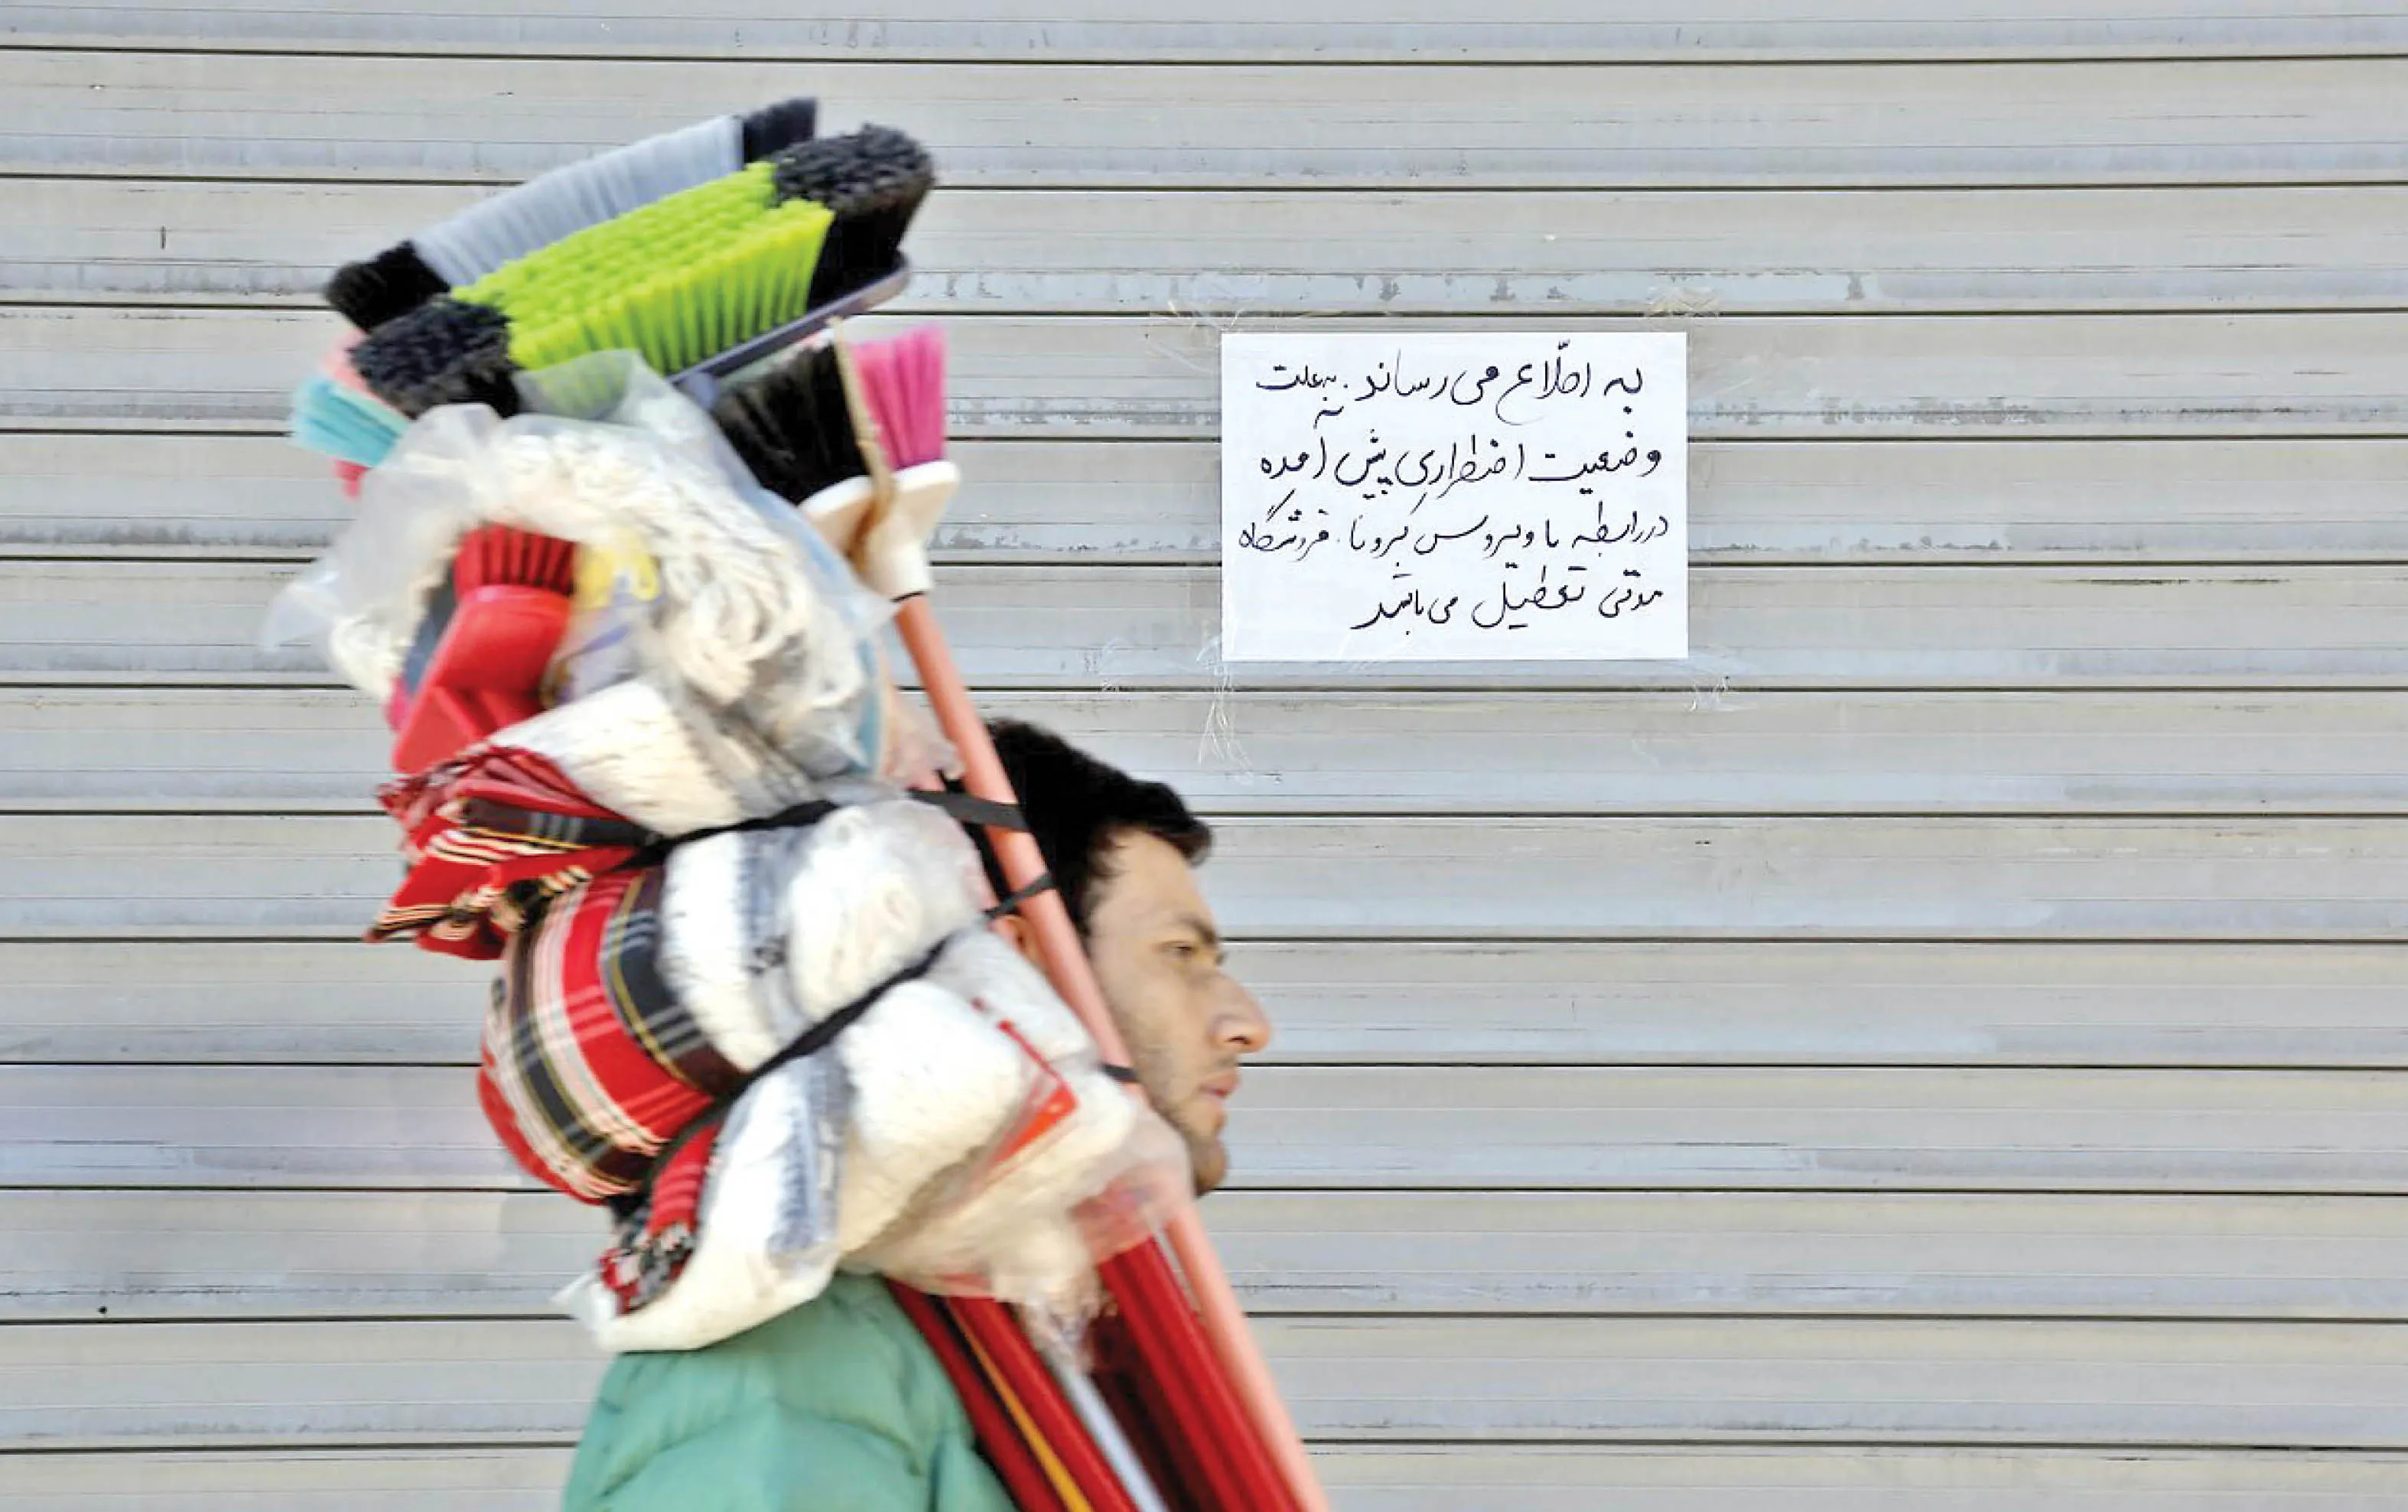 به اطلاع می رساند. به علت
وضعیت اضطراری پیش آمده
در رابطه با ویروس کرونا. فروشگاه
مدتی تعطیل می باشد